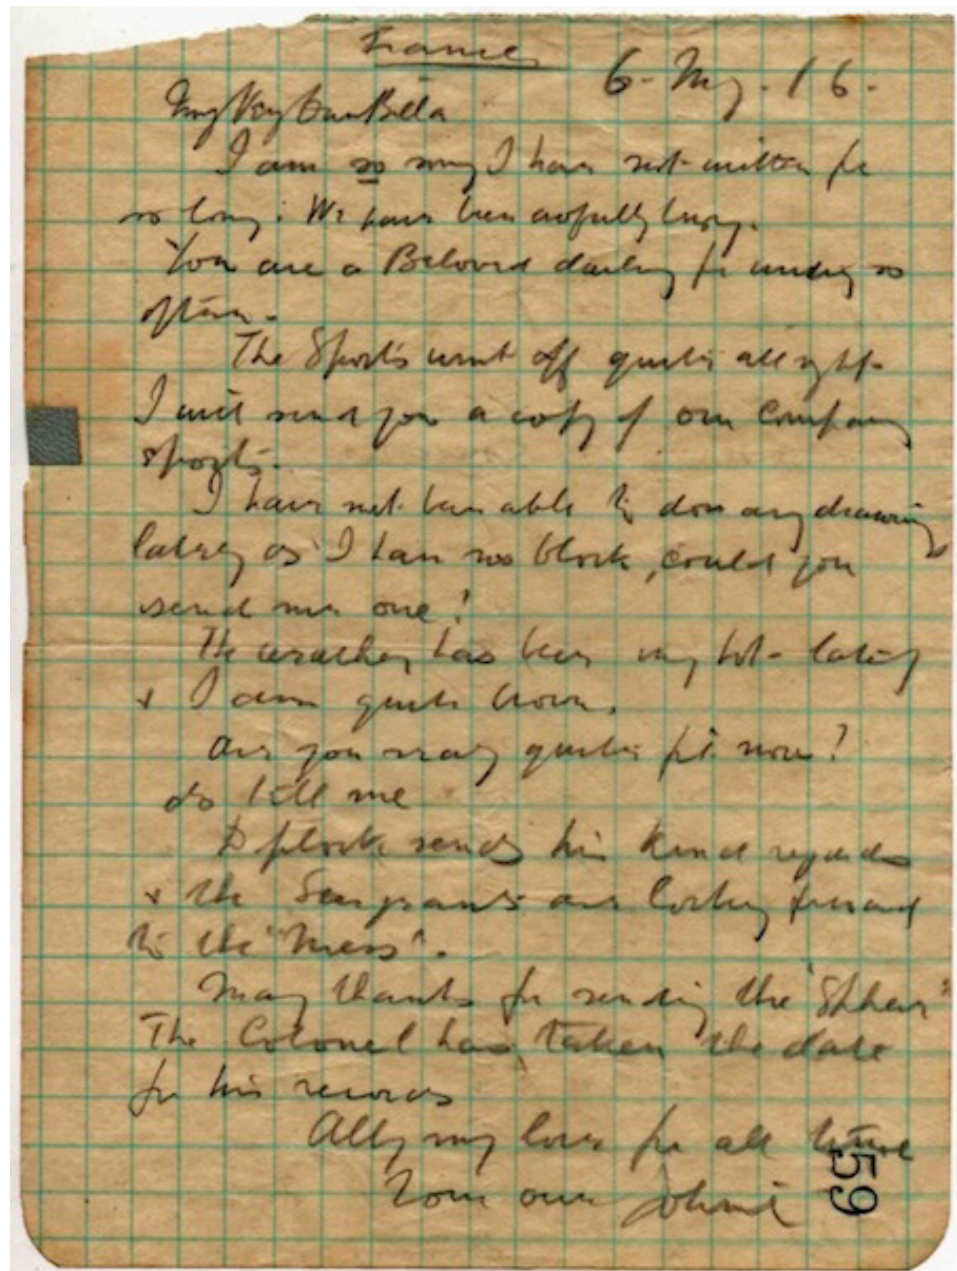 France
6- My. 16.
My Very Dear Bella
I am so sorry I have not written for
so long. We have been awfully busy.
You are a Beloved darling for writing so
often.
The Sports went off quite all right
I will send you a copy of our Company
sports.
I have not been able to do any drawing
lately as I have no block, could you
send me one?
The weather has been very hot lately
& I am quite brown.
Are you really quite fit now?
do tell me
sends his kind regards
& the Sergeants are looking forward
to the "Mess".
Many thanks for sending the "Sphere"
The Colonel has taken the date
for his records
All my love for all time
Your own Johnie
59